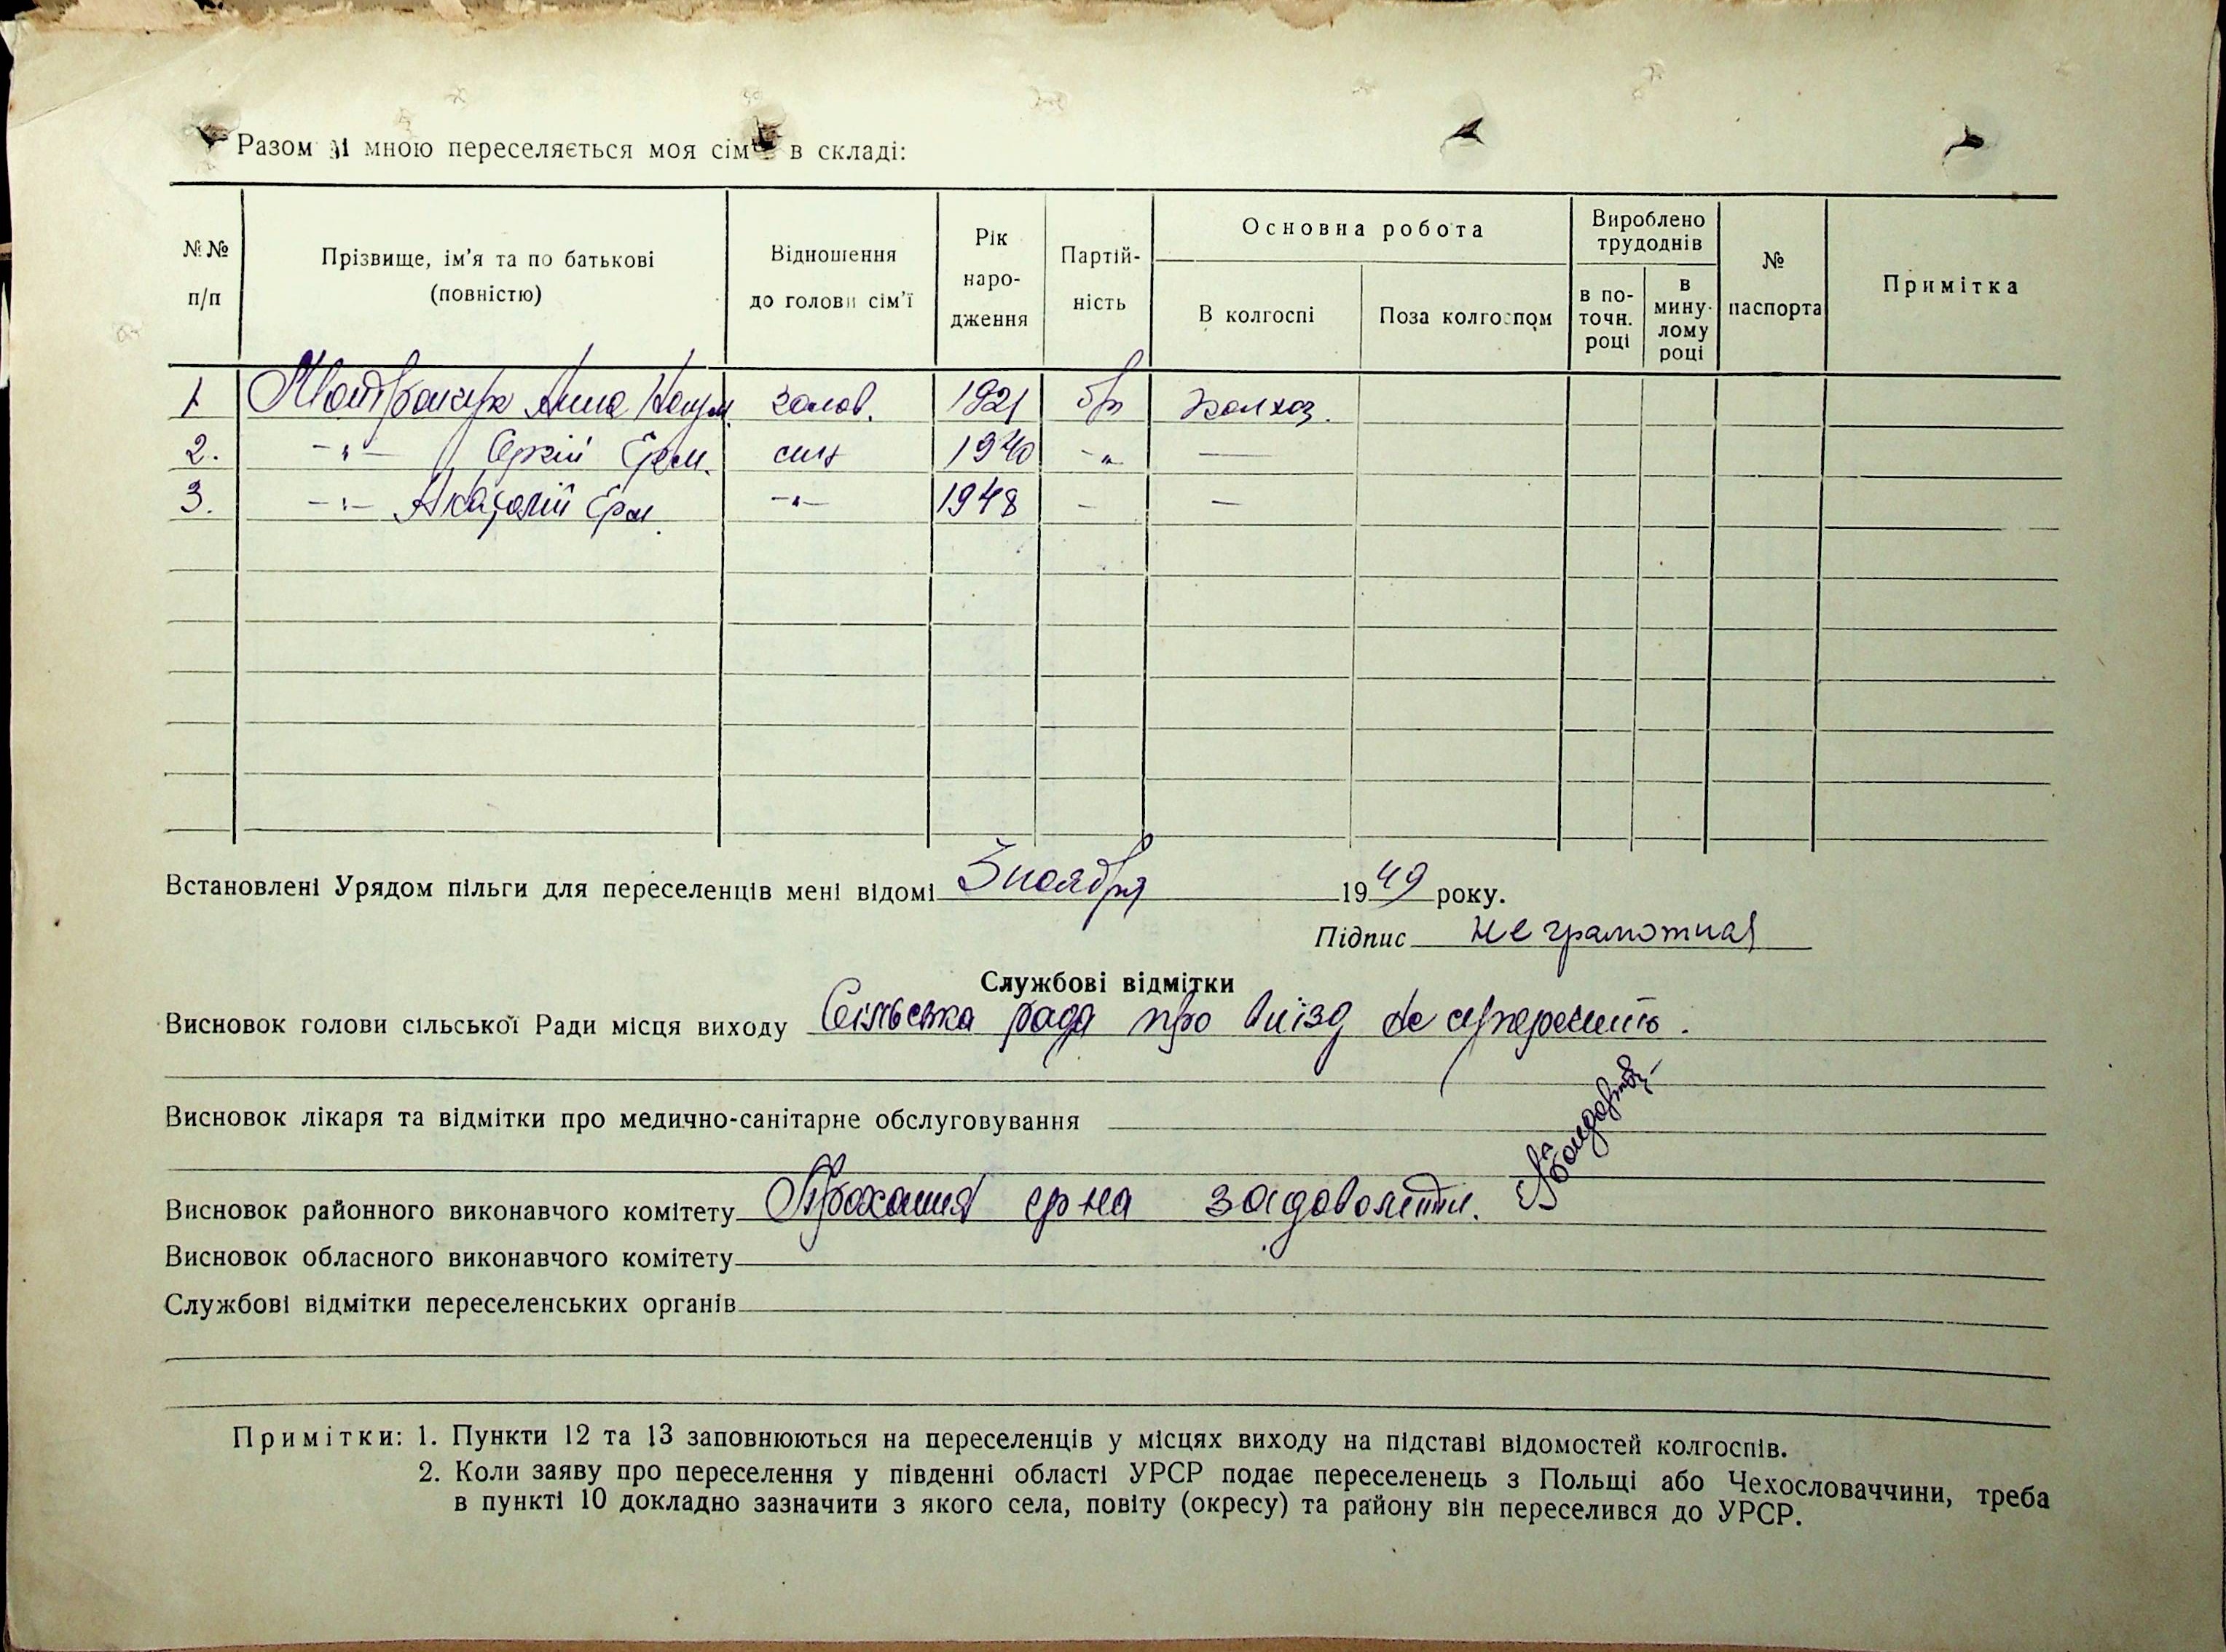 Разом зі мною переселяється моя сім'я в складі:
№№ п/п
Прізвище, ім'я та по батькові (повністю)
Відношення до голови сім'ї
Рік народження
Партійність
Основна робота
В колгоспі
Поза колгоспом
Вироблено трудоднів
в поточн. році
в минулому році
№ паспорта
Примітка
1 Анна Наум. голов. 1921 б/п колхоз.
2. -"- Сергій Ерем. син 1940 -"- —
3. -"- Ерм. -"- 1948 - —
Встановлені Урядом пільги для переселенців мені відомі 3 ноября 1949 року.
Підпис не грамотная
Службові відмітки
Висновок голови сільської Ради місця виходу Сільська рада про виїзд не
Висновок лікаря та відмітки про медично-санітарне обслуговування
Висновок районного виконавчого комітету Прохання гр-на задоволити.
Висновок обласного виконавчого комітету
Службові відмітки переселенських органів
Примітки: 1. Пункти 12 та 13 заповнюються на переселенців у місцях виходу на підставі відомостей колгоспів.
2. Коли заяву про переселення у південні області УРСР подає переселенець з Польщі або Чехословаччини, треба
в пункті 10 докладно зазначити з якого села, повіту (окресу) та району він переселився до УРСР.